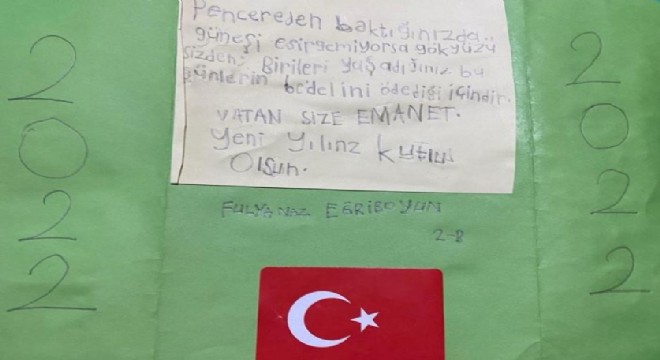 Pencereden baktığınızda
güneşi esirgemiyorsa gökyüzü
sizden. Birileri yaşadığınız bu
günlerin bedelini ödediği içindir.
VATAN SIZE EMANET.
Yeni yılınz kutlu
Olsun.
FULYANAZ EĞRİBOYUN
2-B
2
0
2
2
2
0
2
2